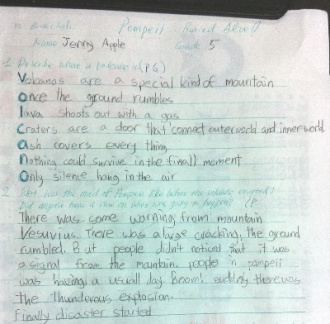 Pompeii Buried Alive
Name Jenny Apple Grade 5
1. Describe what a volcano is (P6)
Volcanos are a special kind of mountain
Once the ground rumbles
lava shoots out with a gas
Craters are a door that connect outerworld and innerworld
ash covers every thing
nothing could survive in the finall moment
Only silence hang in the air
2. was the of Pompeii like before the
There was some warning from mountain
Vesuvius. There was a luge cracking, the ground
rumbled. But people didn't noticed that it was
a signal from the mountain. people in pompeii
was having a usuall day. Boom! there was
the thunderous explosion.
finally disaster started